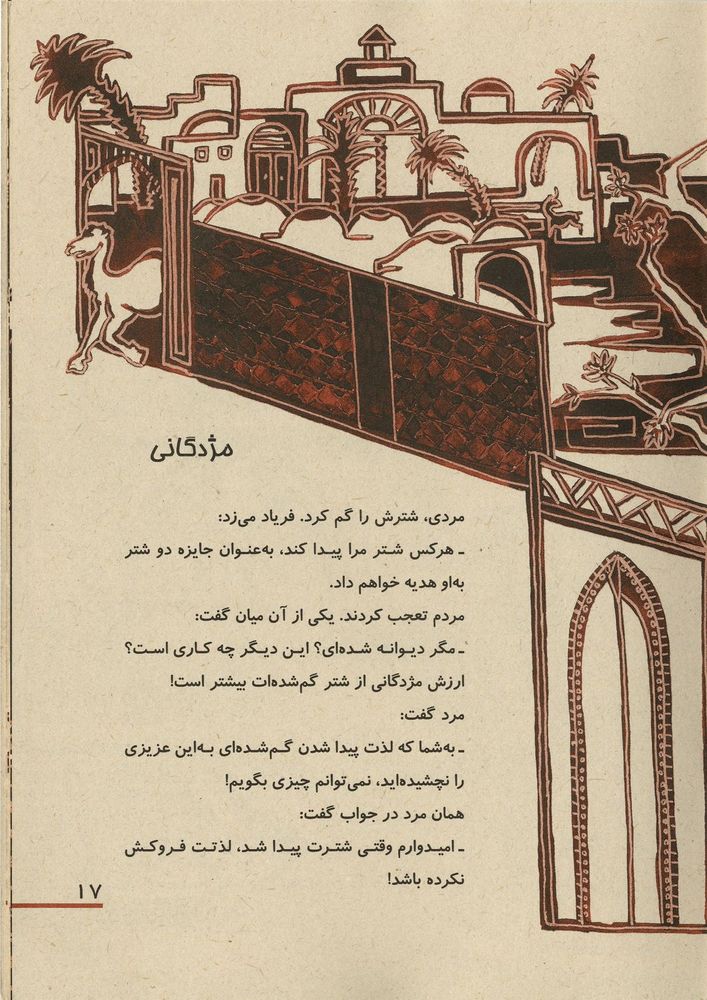 مژدگانی
مردی، شترش را گم کرد. فریاد می‌زد:
ـ هرکس شتر مرا پیدا کند، به‌عنوان جایزه دو شتر
به‌او هدیه خواهم داد.
مردم تعجب کردند. یکی از آن میان گفت:
ـ مگر دیوانه شده‌ای؟ این دیگر چه کاری است؟
ارزش مژدگانی از شتر گم‌شده‌ات بیشتر است!
مرد گفت:
ـ به‌شما که لذت پیدا شدن گم‌شده‌ای به‌این عزیزی
را نچشیده‌اید، نمی‌توانم چیزی بگویم!
همان مرد در جواب گفت:
ـ امیدوارم وقتی شترت پیدا شد، لذتت فروکش
نکرده باشد!
۱۷